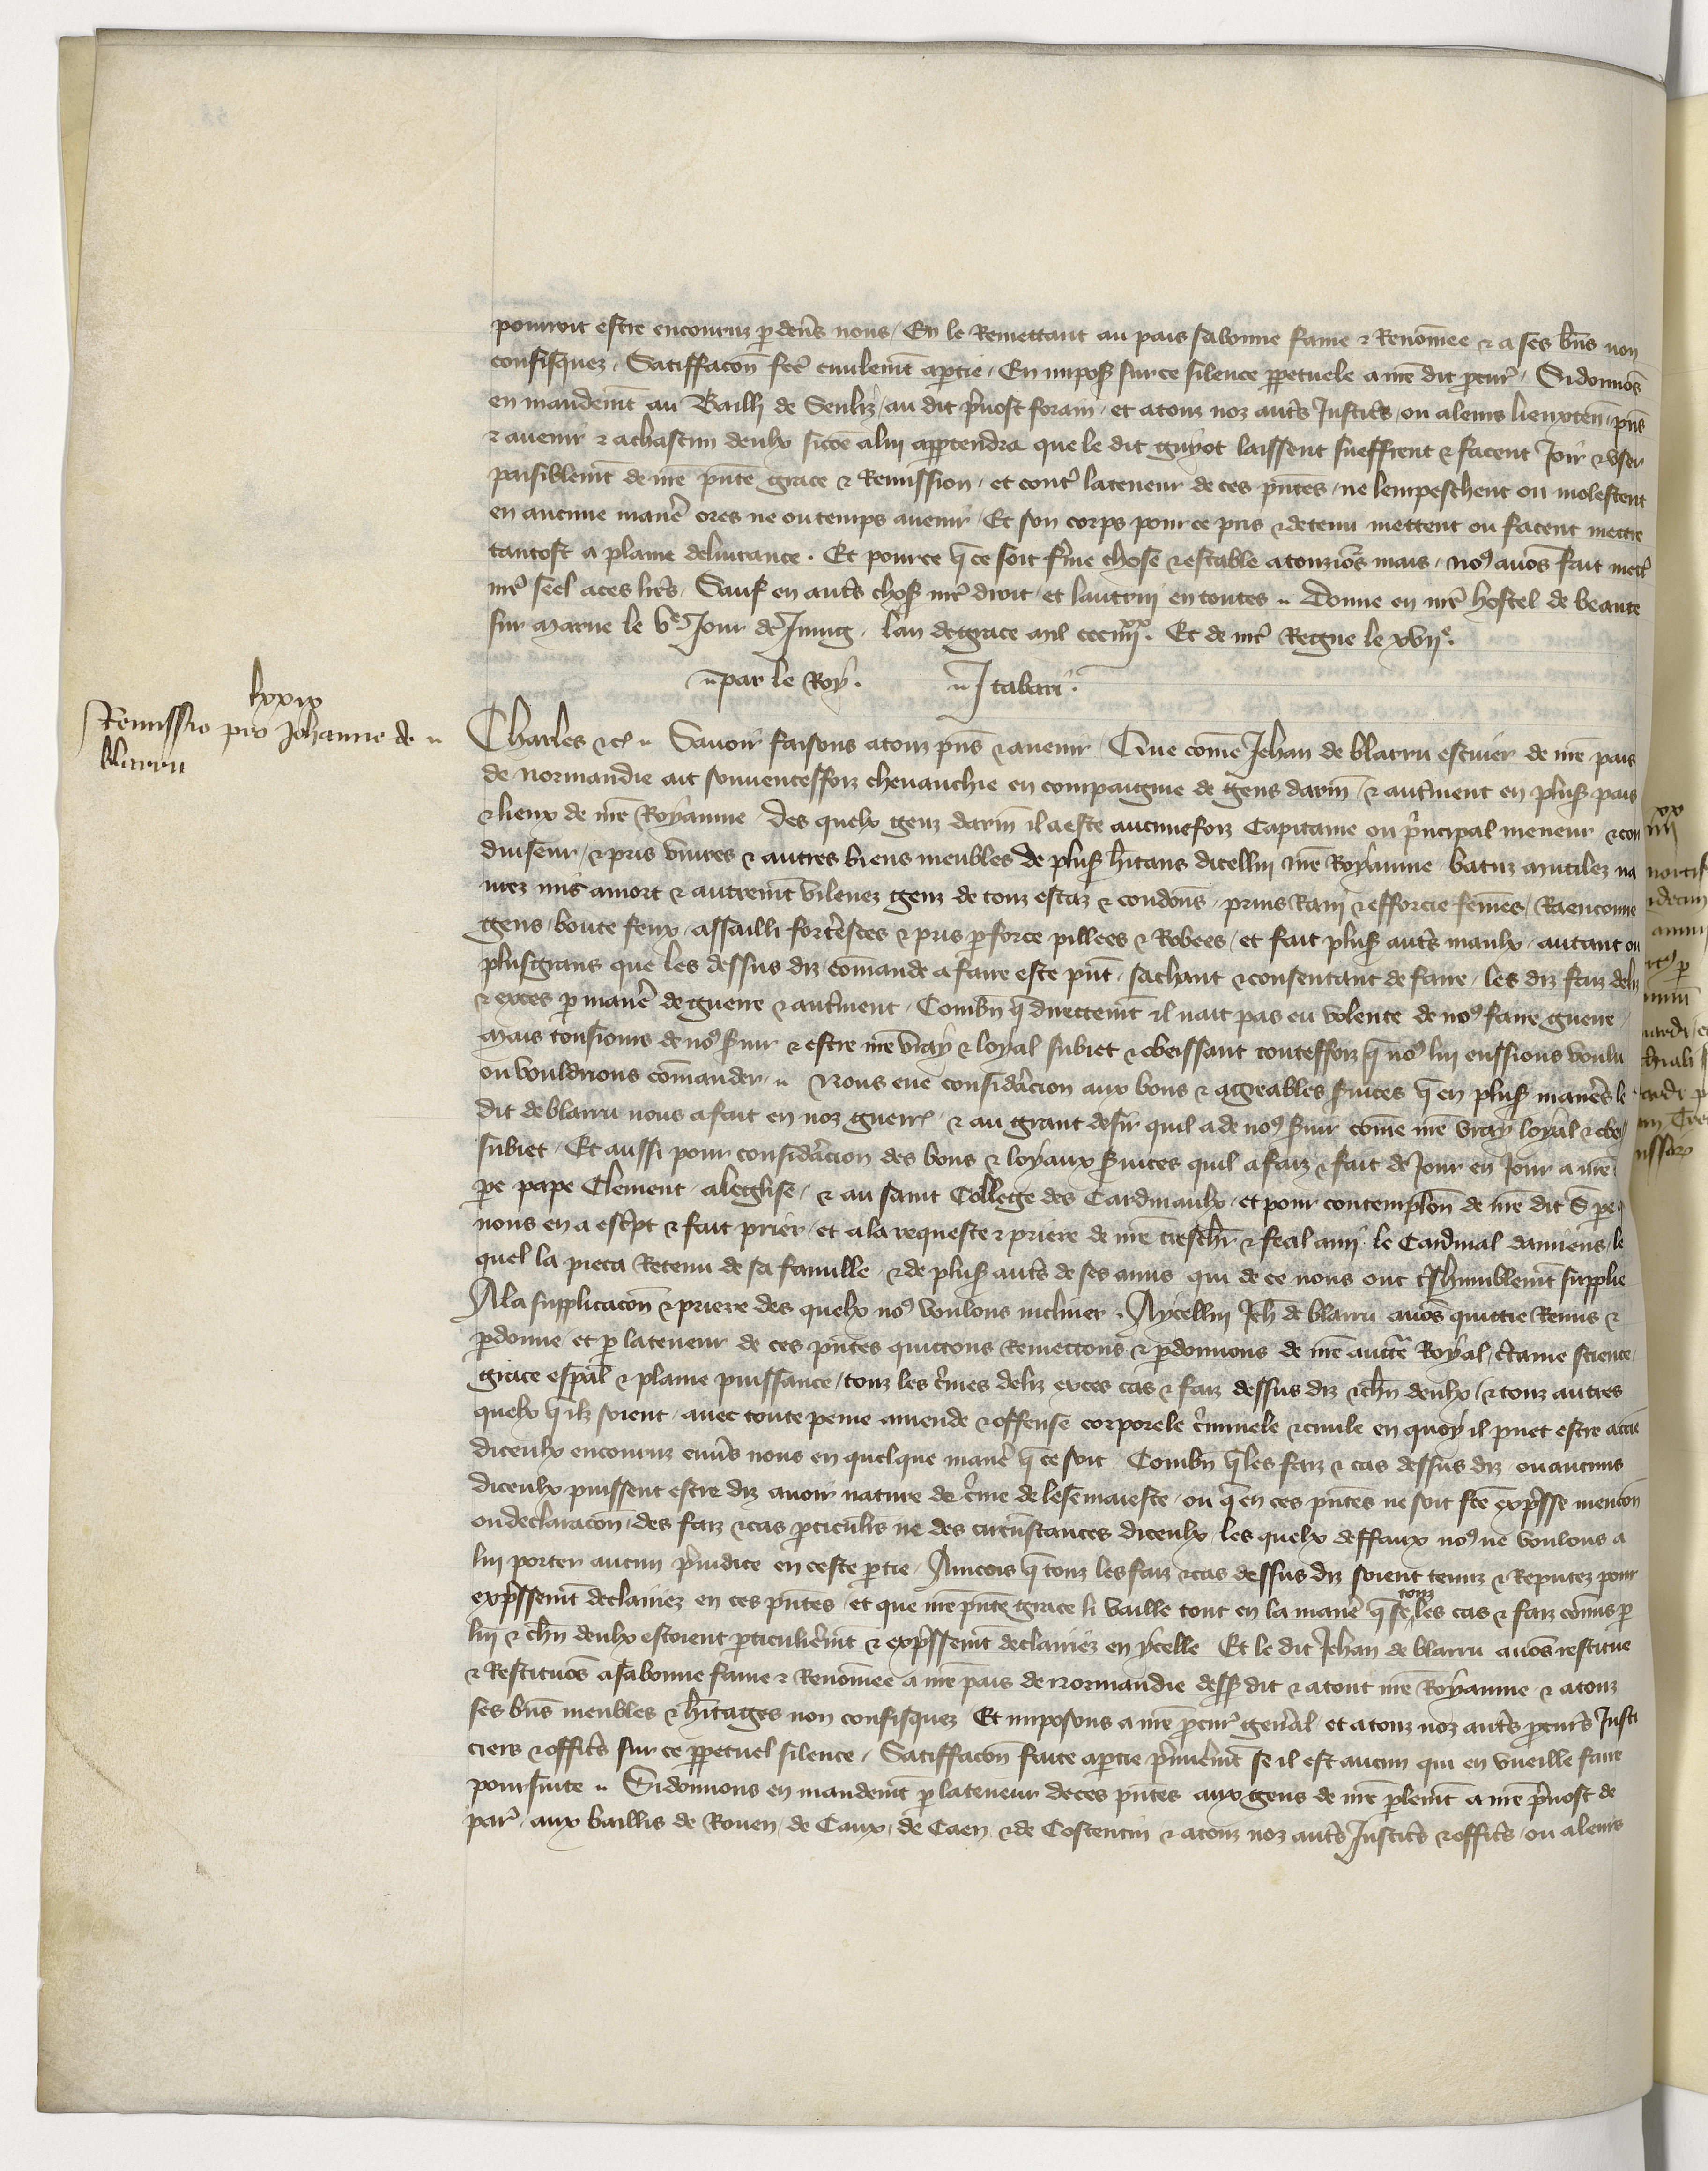 pourroit estre encouruz p̱ deūs nous / En le Remettant au pais sabonne fame & Renōmee & a ses bn̄s non
confisquez. Satiffacōn fcē ciuilemt̄ a p̱tie / En impoſ sur ce silence p̱petuele a nrē dit p̱cur̄ / Sidonnōs
en mandemt̄ au Bailli de Senliz / au dit p̄uost forain / et atouz noz autr̄s Justicr̄s / ou aleurs lieuxten̄. p̄ns
& auenir & achascun deulx sicōe alui app̱tendra que le dit guyot laissent sueffrent & facent Joir & vser
paisiblemt̄ de nrē pn̄te grace & Remission / et contr̄ lateneur de ces pn̄tes / ne lempeschent ou molestent
en aucune manēr ores ne ou temps auenir / Et son corps pour ce pris & detenu mettent ou facent mettre
tantost a plaine deliurance. Et pource q̄ ce soit fr̄me chose & estable atouziōrs mais / noꝰ auōs fait mettr̄
nrē seel aces lrēs / Sauf en autr̄s choſ nrē droit / et lautrui en toutes .. Donne en nrē hostel de beaute
sur marne le Vᵉ Jour de Juing. lan de grace mil ccciiiixx. Et de nrē Regne le xvijᵉ.
.. par le Roy. .. J tabari.
lxxix
Remissio pro Johanne de ..
blarru
Charles &cᵃ .. Sauoir faisons atouz pn̄s & auenir Que cōme Jehan de blarru escuier de nrē pais
de normandie ait souuenteffoiz cheuauchie en compaignie de gens darm̄ / & autr̄ment en pluſ pais
& lieux de nrē Royaume des quelx genz darm̄ il a este aucuneffoiz Capitaine ou p̄ncipal meneur & con
duiseur / & pris viures & autres biens meubles de pluſ h̄itans dicellui nrē Royaume batuz mutilez na
urez mis amort & autremt̄ vilenez genz de touz estaz & condōns. prins Raui & efforcie fēmes / Raenconne
gens / boute feux / assailli forter̄sces & pris p̱ force pillees & Robees / et fait pluſ autr̄s maulx / autant ou
plusgrans que les dessus diz cōmande a faire este pn̄t / sachant & consentant de faire / les diz faiz deliz
& exces p̱ manēr de guerre & autr̄ment / Combn̄ q̄ directemt̄ il nait pas eu volente de noꝰ faire guerre /
mais tousiours de noꝰ s̄uir & estre nrē vray & loyal subiet & obeissant touteffoiz q̄ noꝰ lui eussions voulu
ou vouldrions cōmander .. Nous eue consid̄acion aux bons & agreables s̄uices q̄ en pluſ manēr̄s le
dit de blarru nous a fait en noz guerr̄s / & au grant desir quil a de noꝰ s̄uir cōme nrē vray loyal & obeiſſ
subiet / Et aussi pour consid̄acion des bons & loyaux s̄uices quil a faiz & fait de Jour en Jour a nrē
p̱e pape Clement / aleglise / & au saint College des Cardinaulx / et pour contemplōn de nrē dit S. p̱e
nous en a escp̄t & fait prier / et a la requeste & priere de nrē treschr̄ & feal ami le Cardinal damiens / le
quel la pieca Retenu de sa famille & de pluſ autr̄s de ses amis qui de ce nous ont tr̄shumblemt̄ supplie
Ala supplicacōn & priere des quelx noꝰ voulons incliner. Aycellui Jeh̄ de blarru auōs quittie Remis &
p̱donne / et p̱ lateneur de ces pn̄tes quittons Remettons & p̱donnons de nrē auctr̄e Royal / c̄taine science /
grace esp̄al & plaine puissance / touz les cr̄mes deliz exces cas & faiz dessus diz & chn̄ deulx / & touz autres
quelx q̄ ilz soient / auec toute peine amende & offense corporele cr̄iminele & ciuile en quoy il puet estre
diceulx encouruz enūs nous en quelque manēr q̄ ce soit Combn̄ q̄ les faiz & cas dessus diz / ou aucuns
diceulx puissent estre diz auoir nature de cr̄me de lesemaieste / ou q̄ en ces pn̄tes ne soit fcē exp̄sse mencōn
ou declaracōn des faiz & cas p̱ticulr̄s ne des circūnstances diceulx / les quelx deffaux noꝰ ne voulons a
lui porter aucun p̄iudice en ceste p̱tie / Aincois q̄ touz les faiz & cas dessus diz soient tenuz & Reputez pour
exp̄ssemt̄ declairiez en ces pn̄tes / et que nrē pn̄te grace li vaille tout en la manēr q̄ se touz les cas & faiz cōmis p̱
lui & chn̄ deulx estoient p̱ticulier̄mt̄ & exp̄ssemt̄ declairiez en ycelle Et le dit Jehan de blarru auōs restitue
& Restituōs a sabonne fame & Renōmee a nrē pais de Normandie desſ dit & atout nrē Royaume & atouz
ses bn̄s meubles & h̄itages non confisquez Et imposons a nrē p̱cur̄ gen̄al et atouz noz autr̄s p̱cur̄s Justi
ciers & officr̄s sur ce p̱petuel silence / Satiffacōn faite a p̱tie p̄mier̄mt̄ se il est aucun qui en vueille faire
poursuite .. Sidonnons en mandemt̄ p̱ lateneur de ces pn̄tes aux gens de nrē p̱lemt̄ a nrē p̄uost de
par̄ / aux baillis de Rouen / de Caux / de Caen & de Costentin & atouz noz autr̄s Justicr̄s & officr̄s / ou aleurs